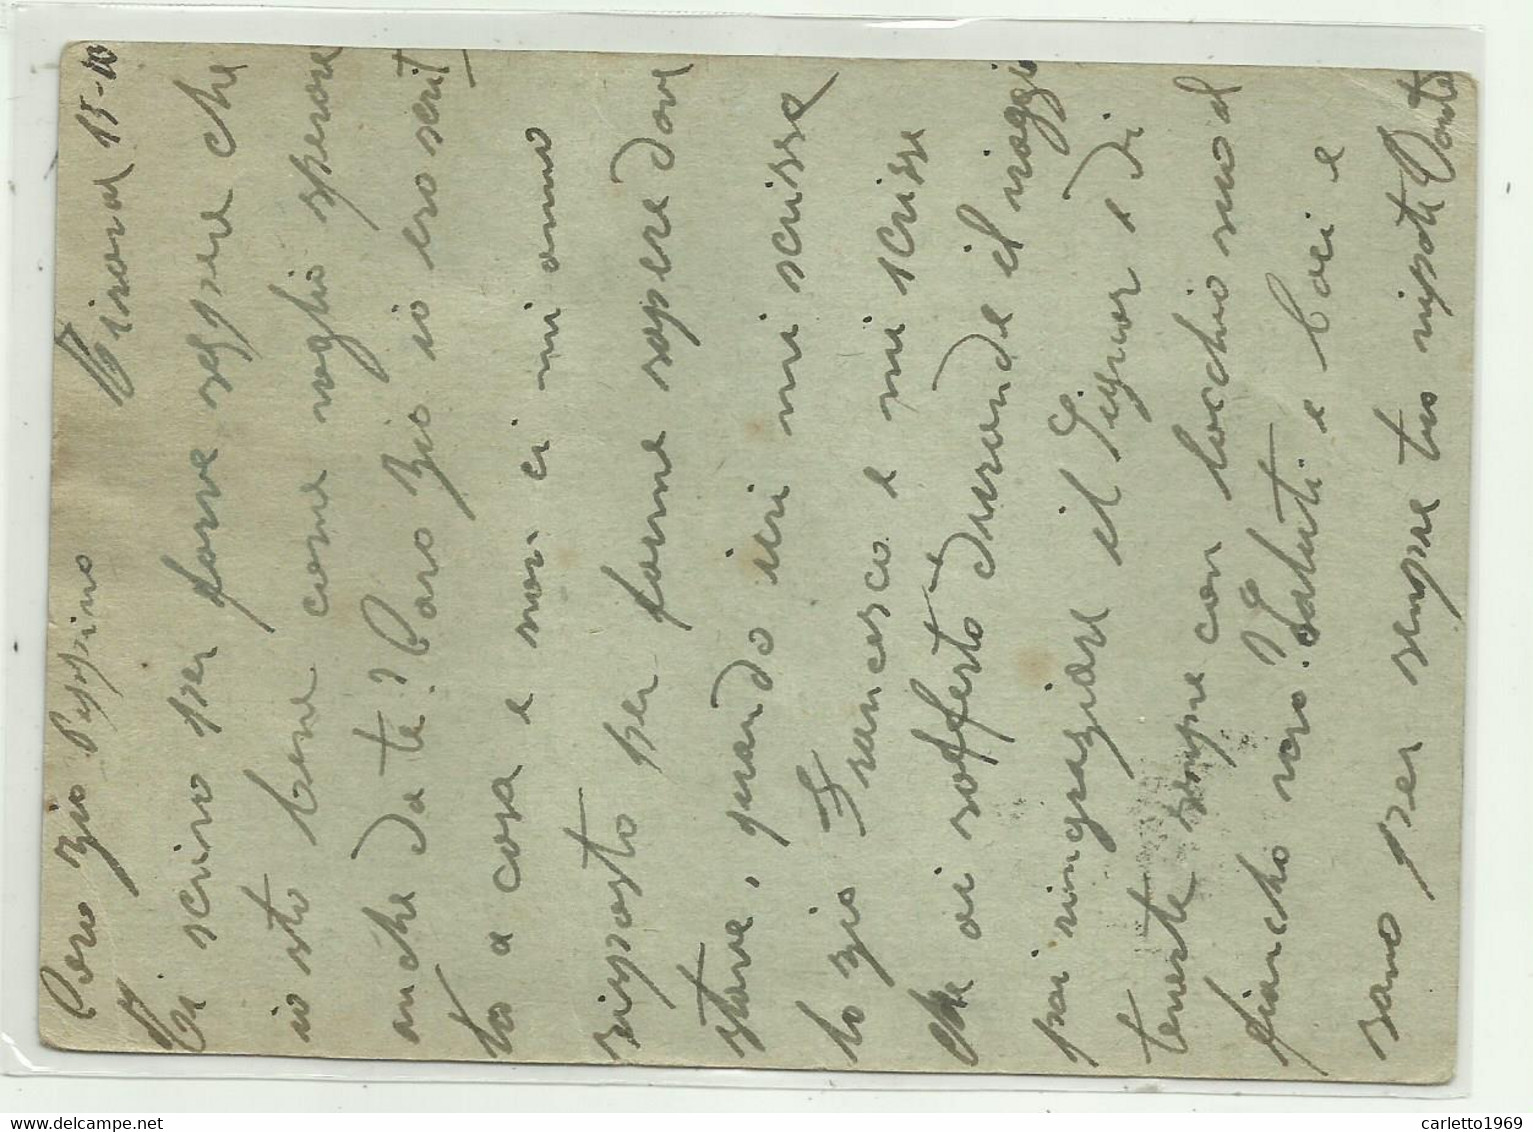 Caro zio Peppino
Tirana 15-10
Ti scrivo per farve sappere che
io sto bene come voglio sperare
anche da te? Caro zio io ero scrit
to a casa e non ci mi anno
risposto per farme sapere dove
stave, quando ieri mi scrisse
lo zio Francesco e mi scrisse
che ai sofferto durande il viaggio
poi ringraziare il Signor e di
teneste sempre con locchio suo al
fiancho vero. Saluti e baci e
sono per sempre tuo nipote
carletto1969